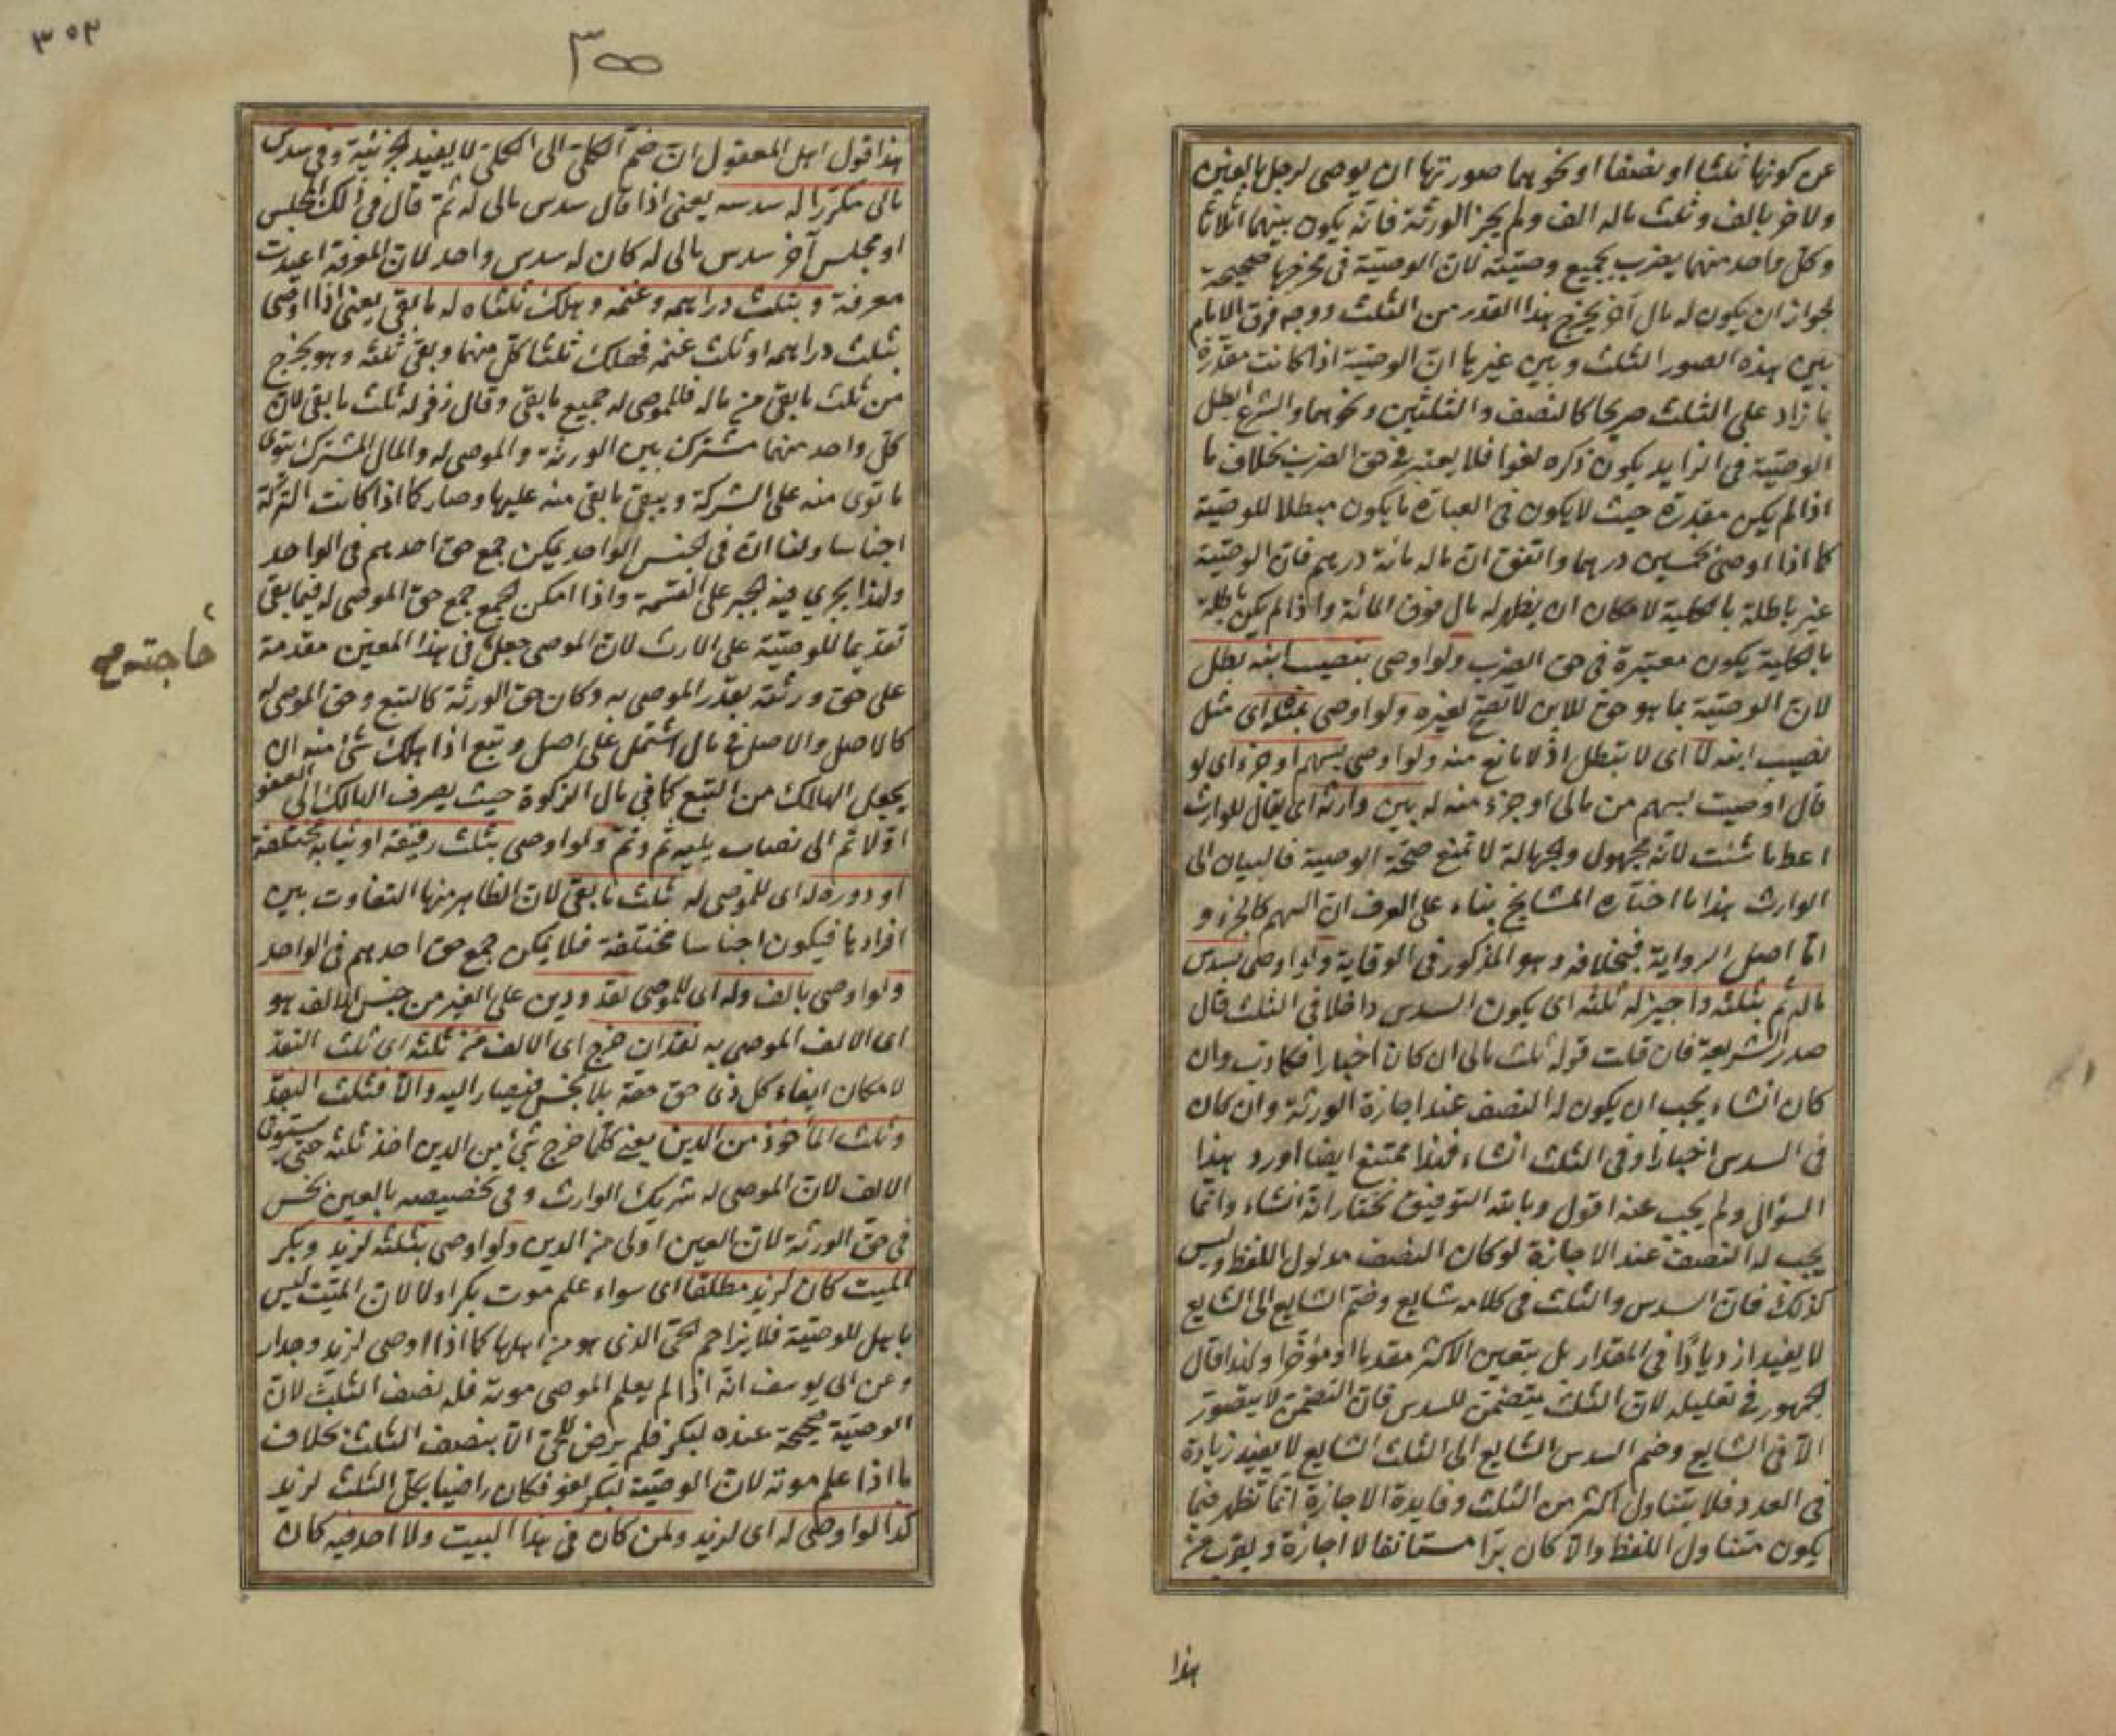 عن كونها ثلثا او نصفا او نحوهما صورتها ان يوصى لرجل بالفين
ولاخر بالف وثلث ماله الف ولم يجز الورثة فانه يكون بينهما اثلاثا
وكل واحد منهما يضرب بجميع وصيته لان الوصية فى مخرجها صحيحة
لجواز ان يكون له مال آخر يخرج هذا القدر من الثلث ووجه فرق الامام
بين هذه الصور الثلث وبين غيرها ان الوصية اذا كانت مقدرة
بما زاد على الثلث صريحا كالنصف والثلثين ونحوهما والشرع ابطل
الوصية فى الزايد يكون ذكره لغوا فلا يعتبر فى حق الضرب بخلاف ما
اذا لم يكن مقدرة حيث لا يكون فى العبارة ما يكون مبطلا للوصية
كما اذا اوصى بخمسين درهما واتفق ان ماله مائة درهم فان الوصية
غير باطلة بالكلية لامكان ان يظهر له مال فوق المائة واذا لم يكن باطلة
بالكلية يكون معتبرة فى حق الضرب ولو اوصى بنصيب ابنه بطل
لان الوصية بما هو حق للابن لا تصح لغيره ولو اوصى بمثله اى مثل
نصيب ابنه لا اى لا تبطل اذ لا مانع منه ولو اوصى بسهم او جزء اى لو
قال اوصيت بسهم من مالى او جزء منه له بين وارثه اى يقال للوارث
اعط ما شئت لانه مجهول والجهالة لا تمنع صحة الوصية فالبيان الى
الوارث هذا ما اختاره المشايخ بناء على العرف ان السهم كالجزء و
اما اصل الرواية فبخلافه وهو المذكور فى الوقاية ولو اوصى بسدس
ماله ثم بثلثه واجيز له ثلثه اى يكون السدس داخلا فى الثلث قال
صدر الشريعة فان قلت قوله ثلث مالى ان كان اخبارا فكاذب وان
كان انشاء يجب ان يكون له النصف عند اجازة الورثة وان كان
فى السدس اخبارا وفى الثلث انشاء فهذا ممتنع ايضا اورد هذا
السؤال ولم يجب عنه اقول وبالله التوفيق نختار انه انشاء وانما
يجب له النصف عند الاجازة لو كان النصف مدلول اللفظ وليس
كذلك فان السدس والثلث فى كلامه شايع وضم الشايع الى الشايع
لا يفيد ازديادا فى المقدار بل يتعين الاكثر مقدما او مؤخرا ولهذا قال
الجمهور فى تعليله لان الثلث يتضمن للسدس فان التضمن لا يتصور
الا فى الشايع وضم السدس الشايع الى الثلث الشايع لا يفيد زيادة
فى العدد فلا يتناول اكثر من الثلث وفايدة الاجازة انما تظهر فيما
يكون متناول اللفظ والا كان برا مستانفا لا اجازة ويقرب من
هذا
٣٥٣
٣٥٥
هذا قول اهل المعقول ان ضم الكلى الى الكلى لا يفيد الجزئية وفى سدس
مالى مكررا له سدسه يعنى اذا قال سدس مالى له ثم قال فى ذلك المجلس
او مجلس آخر سدس مالى له كان له سدس واحد لان المعرفة اعيدت
معرفة وبثلث دراهمه وغنمه وهلك ثلثاه له ما بقى يعنى اذا اوصى
بثلث دراهمه او ثلث غنمه فهلك ثلثا كل منهما وبقى ثلثه وهو يخرج
من ثلث ما بقى من ماله فللموصى له جميع ما بقى وقال زفر له ثلث ما بقى لان
كل واحد منهما مشترك بين الورثة والموصى له والمال المشترك يتوى
ما توى منه على الشركة ويبقى ما بقى منه عليها وصار كما اذا كانت التركة
اجناسا ولنا ان فى الجنس الواحد يمكن جمع حق احدهم فى الواحد
ولهذا يجرى فيه الجبر على القسمة واذا امكن الجمع جمع حق الموصى له فيما بقى
تقديما للوصية على الارث لان الموصى جعل فى هذا المعين مقدمة
حاجته صح
على حق ورثته بقدر الموصى به وكان حق الورثة كالتبع وحق الموصى له
كالاصل والاصل فى مال اشتمل على اصل وتبع اذا هلك شئ منه ان
يجعل الهالك من التبع كما فى مال الزكوة حيث يصرف الهالك الى العفو
اولا ثم الى نصاب يليه ثم وثم ولو اوصى بثلث رقيقه او ثيابه مختلفة
او دوره له اى للموصى له ثلث ما بقى لان الظاهر منها التفاوت بين
افرادها فيكون اجناسا مختلفة فلا يمكن جمع حق احدهم فى الواحد
ولو اوصى بالف وله اى للموصى نقد ودين على الغير من جنس الالف هو
اى الالف الموصى به نقد ان خرج اى الالف من ثلثه اى ثلث النقد
لامكان ايفاء كل ذى حق حقه بلا بخس فيصار اليه والا فثلث النقد
وثلث المأخوذ من الدين يعنى كلما خرج شئ من الدين اخذ ثلثه حتى يستوفى
الالف لان الموصى له شريك الوارث وفى تخصيصه بالعين بخس
فى حق الورثة لان العين اولى من الدين ولو اوصى بثلثه لزيد وبكر
الميت كان لزيد مطلقا اى سواء علم موت بكر او لا لان الميت ليس
باهل للوصية فلا يزاحم الحى الذى هو من اهلها كما اذا اوصى لزيد وجدار
وعن ابى يوسف انه اذا لم يعلم الموصى موته فله نصف الثلث لان
الوصية صحيحة عنده لبكر فلم يرض للحى الا بنصف الثلث بخلاف
ما اذا علم موته لان الوصية لبكر لغو فكان راضيا بكل الثلث لزيد
كذا لو اوصى له اى لزيد ولمن كان فى هذا البيت ولا احد فيه كان